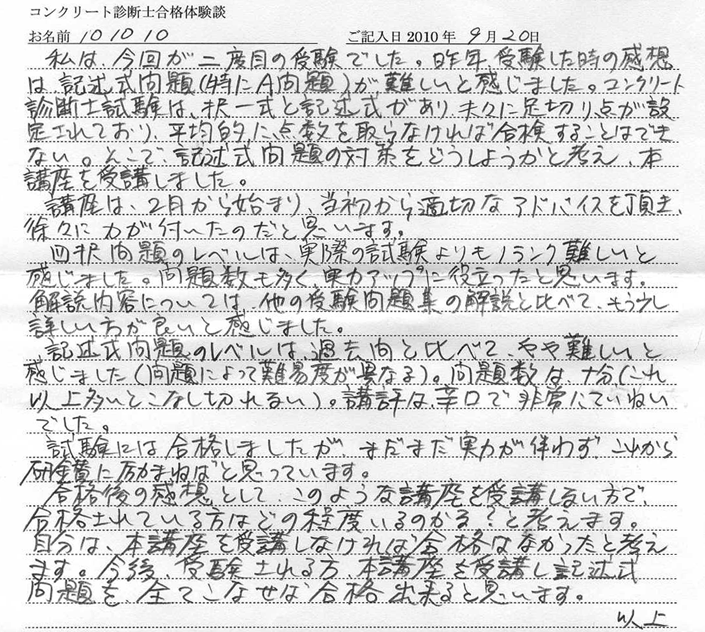 コンクリート診断士合格体験談
お名前 101010 ご記入日 2010 年 9月20日
私は、今回が二度目の受験でした。昨年、受験した時の感想
は、記述式問題(特にA問題)が難しいと感じました。コンクリート
診断士試験は、択一式と記述式があり、夫々に足切り点が設
定されており、平均的に点数を取らなければ合格することはでき
ない。そこで、記述式問題の対策をどうしようかと考え、本
講座を受講しました。
講座は、2月から始まり、当初から適切なアドバイスを頂き、
徐々に力が付いたのだと思います。
四択問題のレベルは、実際の試験よりも1ランク難しいと
感じました。問題数も多く、実力アップに役立ったと思います。
解説内容については、他の受験問題集の解説と比べて、もう少し
詳しい方が良いと感じました。
記述式問題のレベルは、過去問と比べて、やや難しいと
感じました(問題によって難易度が異なる)。問題数は十分(これ
以上多いとこなし切れない)。講評は、辛口で非常にていねい
でした。
試験には合格しましたが、まだまだ実力が伴わず、これから
研鑽に励まねばと思っています。
合格後の感想として、このような講座を受講しない方で、
合格されている方はどの程度いるのかな?と考えます。
自分は、本講座を受講しなければ合格はなかったと考え
ます。今後、受験される方、本講座を受講し記述式
問題を、全てこなせば合格出来ると思います。
以上